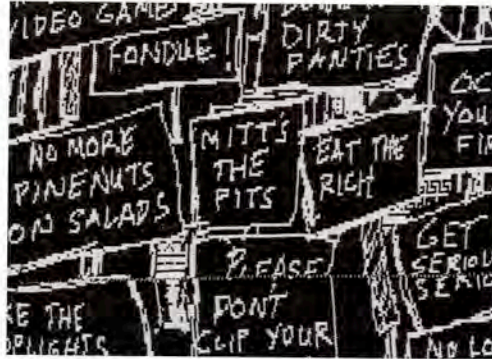 VIDEO GAME
FONDUE!
DIRTY
PANTIES
NO MORE
PINENUTS
ON SALADS
MITT'S
THE
PITS
EAT THE
RICH
YOU
GET
PLEASE
DON'T
CLIP YOUR
THE
NO